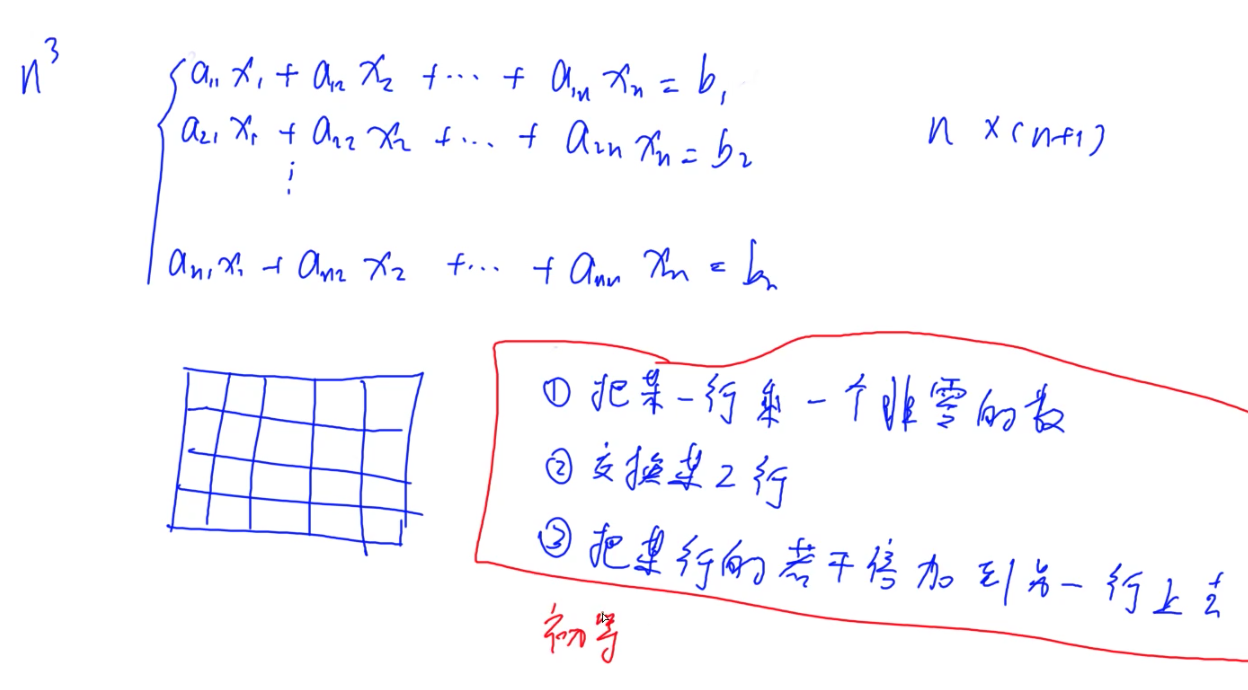 n³
a₁₁ x₁ + a₁₂ x₂ + ... + a₁ₙ xₙ = b₁
a₂₁ x₁ + a₂₂ x₂ + ... + a₂ₙ xₙ = b₂
n × (n+1)
⋮
aₙ₁ x₁ + aₙ₂ x₂ + ... + aₙₙ xₙ = bₙ
① 把某一行乘一个非零的数
② 交换某2行
③ 把某行的若干倍加到另一行上去
初等